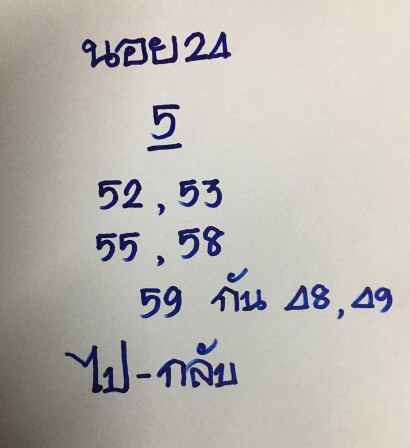 นอย24
5
52, 53
55, 58
59 กัน 48, 49
ไป-กลับ